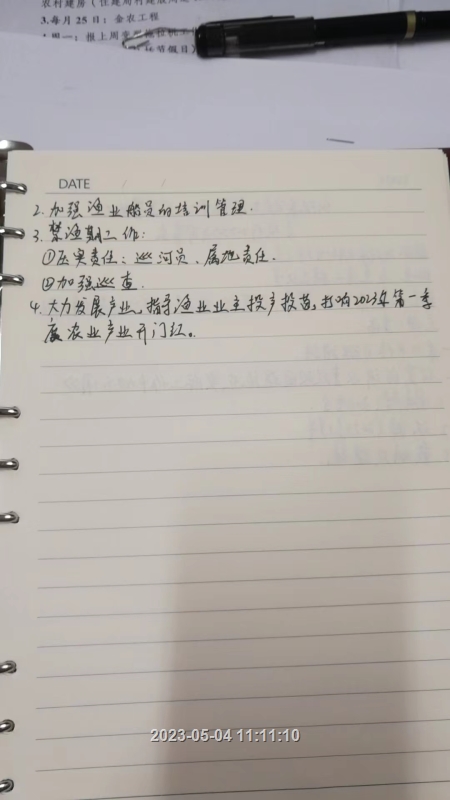 农村建房（住建局村建股
3.每月25日：金农工程
节假日）
DATE / /
2.加强渔业船员的培训管理.
3.禁渔期工作:
①压实责任:巡河员、属地责任.
②加强巡查.
4.大力发展产业,指导渔业业主投产投苗,打响2023年第一季
度农业产业开门红。
2023-05-04 11:11:10